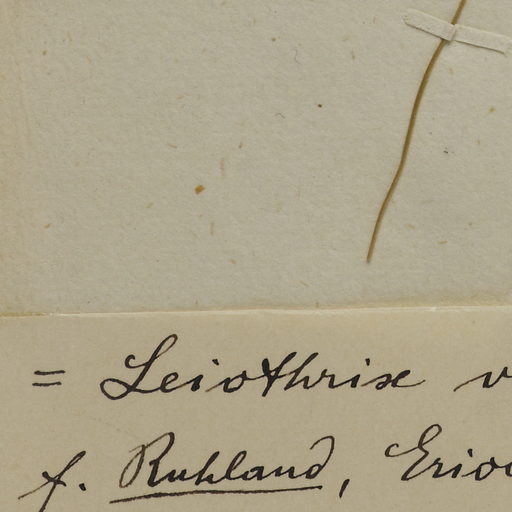 = Leiothrix v
f. Ruhland, Erioc